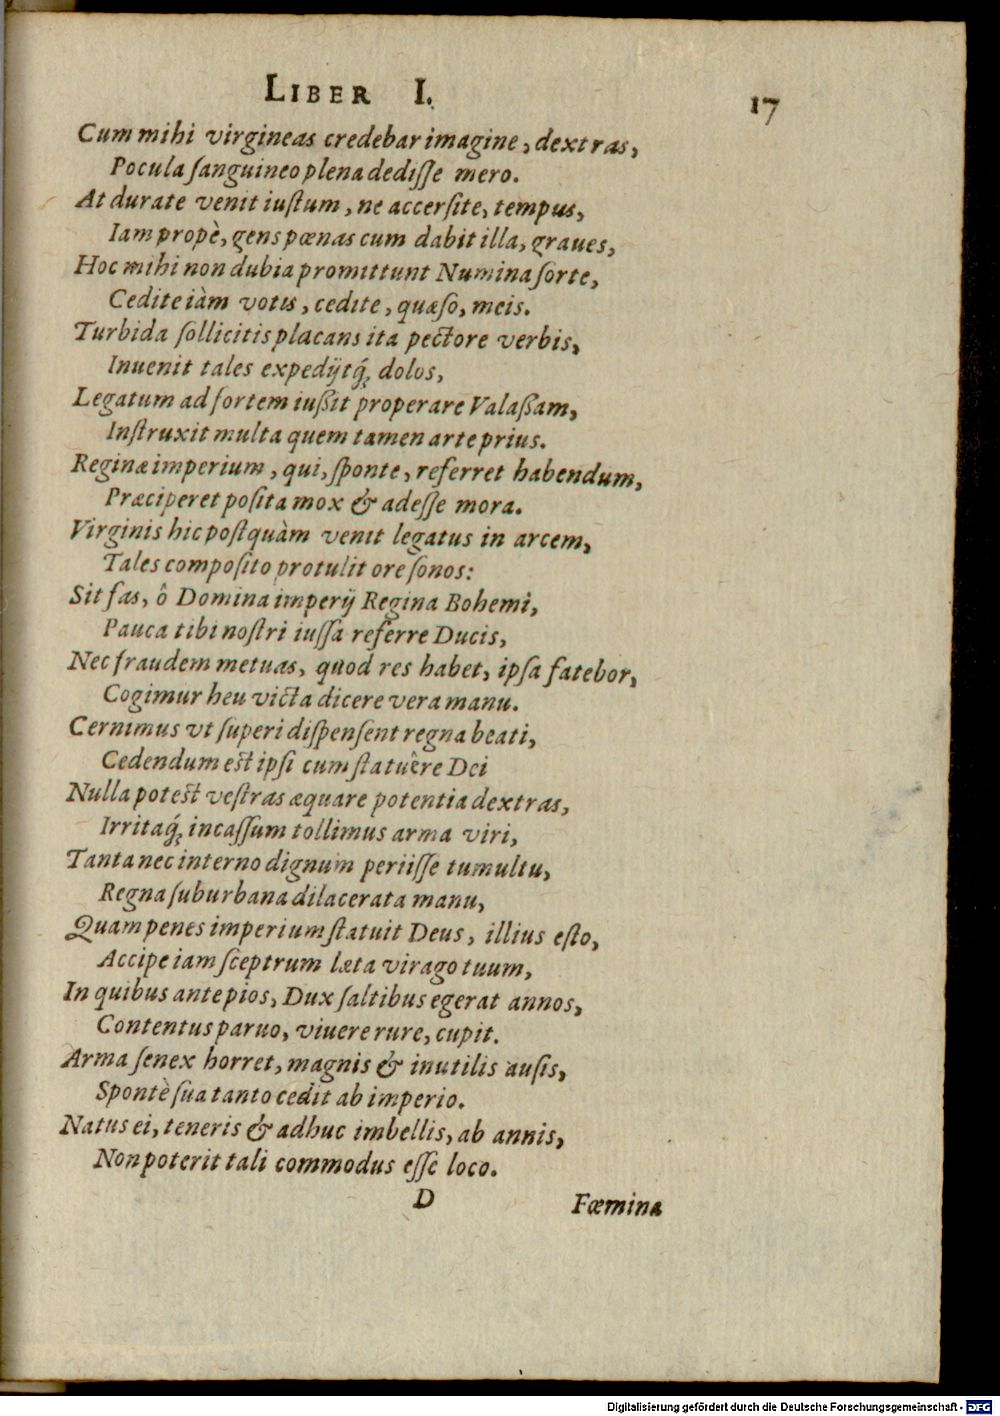 LIBER I. 17
Cum mihi virgineas credebar imagine, dextras,
Pocula ſanguineo plena dediſſe mero.
At durate venit iuſtum, ne accerſite, tempus,
Iam propè, gens pœnas cum dabit illa, graues,
Hoc mihi non dubia promittunt Numina ſorte,
Cedite iàm votis, cedite, quæſo, meis.
Turbida ſollicitis placans ita pectore verbis,
Inuenit tales expedijtq́; dolos,
Legatum ad fortem iußit properare Valaßam,
Inſtruxit multa quem tamen arte prius.
Reginæ imperium, qui, ſponte, referret habendum,
Præciperet poſita mox & adeſſe mora.
Virginis hic poſtquàm venit legatus in arcem,
Tales compoſito protulit ore ſonos:
Sit fas, ô Domina imperij Regina Bohemi,
Pauca tibi noſtri iuſſa referre Ducis,
Nec fraudem metuas, quod res habet, ipſa fatebor,
Cogimur heu victa dicere vera manu.
Cernimus vt ſuperi diſpenſent regna beati,
Cedendum eſt ipſi cum ſtatuêre Dei
Nulla poteſt veſtras æquare potentia dextras,
Irritaq́; incaſſum tollimus arma viri,
Tanta nec interno dignum periiſſe tumultu,
Regna ſuburbana dilacerata manu,
Quam penes imperium ſtatuit Deus, illius eſto,
Accipe iam ſceptrum læta virago tuum,
In quibus ante pios, Dux ſaltibus egerat annos,
Contentus paruo, viuere rure, cupit.
Arma ſenex horret, magnis & inutilis auſis,
Spontè ſua tanto cedit ab imperio.
Natus ei, teneris & adhuc imbellis, ab annis,
Non poterit tali commodus eſſe loco.
D Fœmina
Digitalisierung gefördert durch die Deutsche Forschungsgemeinschaft - DFG